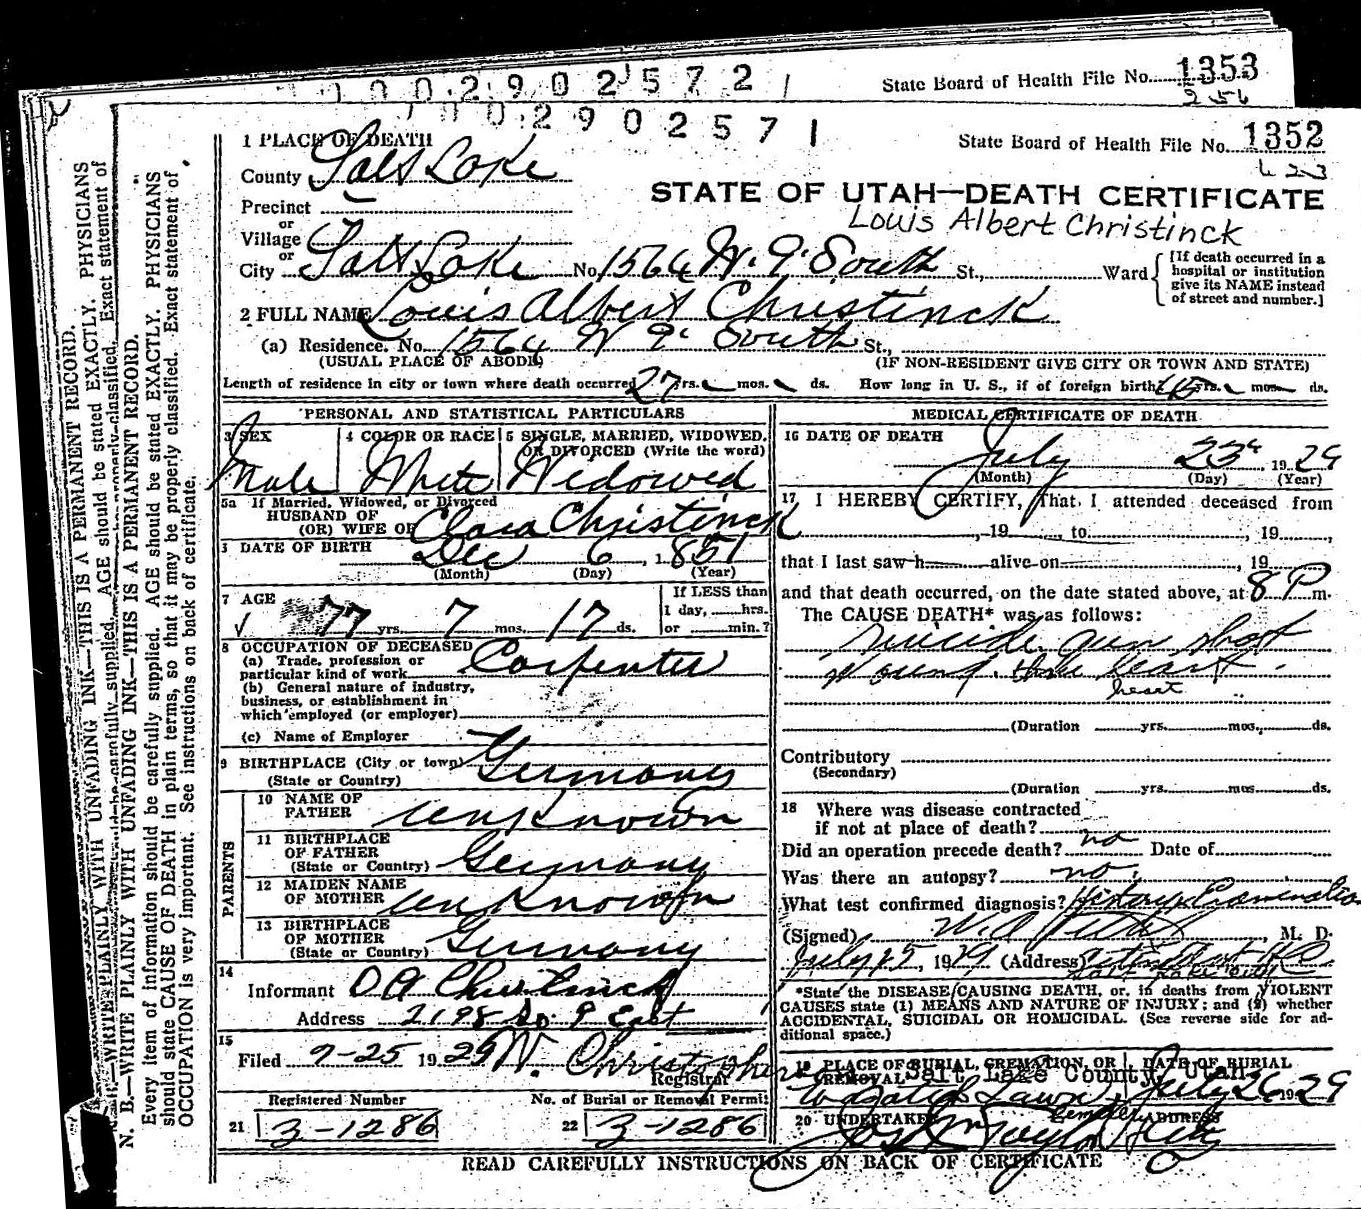 1002902572
State Board of Health File No. 1353
256
100290257 1
State Board of Health File No. 1352
623
1 PLACE OF DEATH
County Salt Lake
STATE OF UTAH—DEATH CERTIFICATE
Precinct
or
Louis Albert Christinck
Village
or
City Salt Lake No. 1564 W. 9 South St., Ward
[If death occurred in a
hospital or institution
give its NAME instead
of street and number.]
2 FULL NAME Louis Albert Christinck
(a) Residence. No. 1564 W 9 South St.,
(USUAL PLACE OF ABODE) (IF NON-RESIDENT GIVE CITY OR TOWN AND STATE)
Length of residence in city or town where death occurred 27 yrs. mos. ds. How long in U. S., if of foreign birth yrs. mos. ds.
PERSONAL AND STATISTICAL PARTICULARS
3 SEX
Male
4 COLOR OR RACE
White
5 SINGLE, MARRIED, WIDOWED,
OR DIVORCED (Write the word)
Widowed
5a If Married, Widowed, or Divorced
HUSBAND OF
(OR) WIFE OF Clara Christinck
6 DATE OF BIRTH
Dec 6, 1851
(Month) (Day) (Year)
7 AGE
77 yrs. 7 mos. 17 ds.
If LESS than
1 day, hrs.
or min.?
8 OCCUPATION OF DECEASED
(a) Trade, profession or
particular kind of work Carpenter
(b) General nature of industry,
business, or establishment in
which employed (or employer)
(c) Name of Employer
9 BIRTHPLACE (City or town)
(State or Country) Germany
PARENTS
10 NAME OF
FATHER unknown
11 BIRTHPLACE
OF FATHER
(State or Country) Germany
12 MAIDEN NAME
OF MOTHER unknown
13 BIRTHPLACE
OF MOTHER
(State or Country) Germany
14
Informant O A Christinck
Address 2198 So. 9 East
15
Filed 7-25 1929 W. Christopher
Registrar
Registered Number No. of Burial or Removal Permit
21 3-1286 22 3-1286
MEDICAL CERTIFICATE OF DEATH
16 DATE OF DEATH
July 23 1929
(Month) (Day) (Year)
17 I HEREBY CERTIFY, That I attended deceased from
, 19 , to , 19 ,
that I last saw h alive on , 19
and that death occurred, on the date stated above, at 8 P m.
The CAUSE DEATH* was as follows:
Suicide gun shot
wound. thru heart.
heart
(Duration yrs. mos. ds.
Contributory
(Secondary)
(Duration yrs. mos. ds.
18 Where was disease contracted
if not at place of death?
Did an operation precede death? no Date of
Was there an autopsy? no.
What test confirmed diagnosis? History Examination
(Signed) W. , M. D.
July 25, 1929 (Address)
Salt Lake City
*State the DISEASE CAUSING DEATH, or, in deaths from VIOLENT
CAUSES state (1) MEANS AND NATURE OF INJURY; and (2) whether
ACCIDENTAL, SUICIDAL OR HOMICIDAL. (See reverse side for ad-
ditional space.)
19 PLACE OF BURIAL, CREMATION, OR
REMOVAL
DATE OF BURIAL
Salt Lake County, Utah
Wasatch Lawn July 26 1929
20 UNDERTAKER ADDRESS
Jos Wm Taylor
READ CAREFULLY INSTRUCTIONS ON BACK OF CERTIFICATE
N. B.—WRITE PLAINLY WITH UNFADING INK—THIS IS A PERMANENT RECORD.
Every item of information should be carefully supplied. AGE should be stated EXACTLY. PHYSICIANS
should state CAUSE OF DEATH in plain terms, so that it may be properly classified. Exact statement of
OCCUPATION is very important. See instructions on back of certificate.